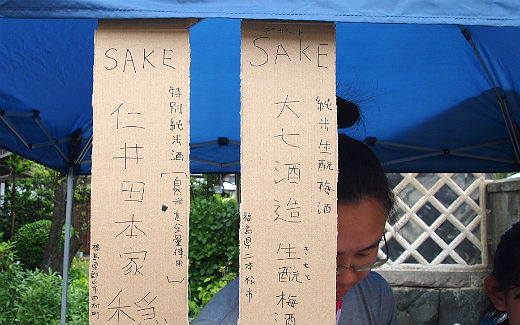 SAKE
特別純米酒
仁井田本家
「自然米100%使用」
福島県郡山市田村町
穏
デザート
SAKE
純米生酛梅酒
大七酒造
きもと
生酛梅酒
福島県二本松市